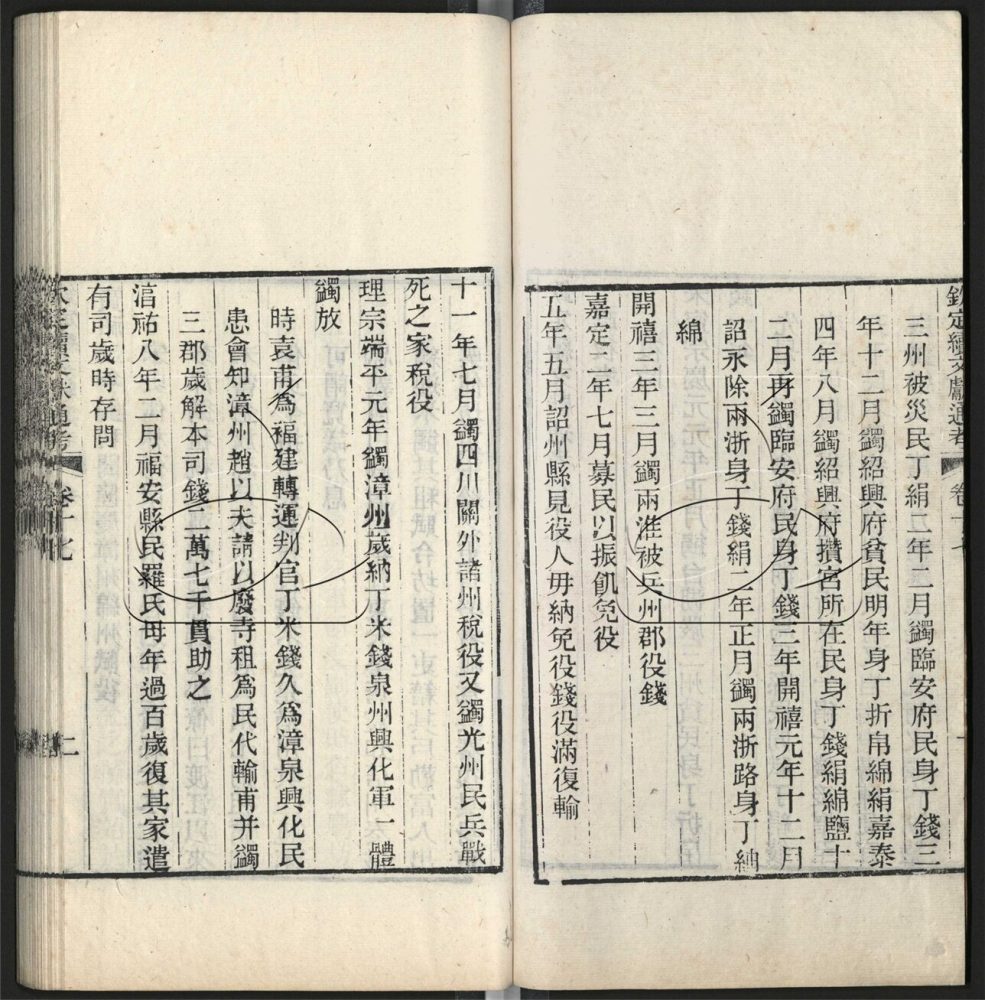 欽定續文獻通考 卷十七
三州被災民丁絹二年二月蠲臨安府民身丁錢三
年十二月蠲紹興府貧民明年身丁折帛綿絹嘉泰
四年八月蠲紹興府攢宮所在民身丁錢絹綿鹽十
二月再蠲臨安府民身丁錢三年開禧元年十二月
詔永除兩浙身丁錢絹二年正月蠲兩浙路身丁紬
綿
開禧三年三月蠲兩淮被兵州郡役錢
嘉定二年七月募民以振飢免役
五年五月詔州縣見役人毋納免役錢役滿復輸
十一年七月蠲四川關外諸州稅役又蠲光州民兵戰
死之家稅役
理宗端平元年蠲漳州歲納丁米錢泉州興化軍一體
蠲放
時袁甫爲福建轉運判官丁米錢久爲漳泉興化民
患會知漳州趙以夫請以廢寺租爲民代輸甫并蠲
三郡歲解本司錢二萬七千貫助之
淳祐八年二月福安縣民羅氏母年過百歲復其家遣
有司歲時存問
欽定續文獻通考 卷十七 二